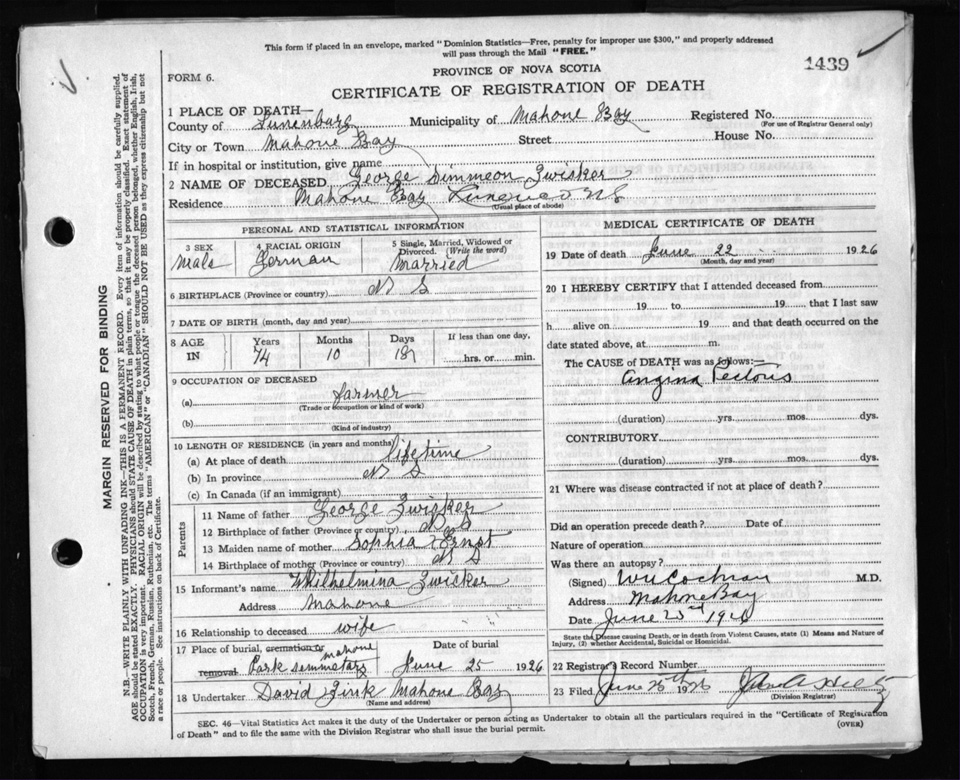 This form if placed in an envelope, marked "Dominion Statistics—Free, penalty for improper use $300," and properly addressed
will pass through the Mail "FREE."
1439
FORM 6.
PROVINCE OF NOVA SCOTIA
CERTIFICATE OF REGISTRATION OF DEATH
1 PLACE OF DEATH—
County of Lunenburg Municipality of Mahone Bay Registered No.
(For use of Registrar General only)
City or Town Mahone Bay Street House No.
If in hospital or institution, give name
2 NAME OF DECEASED George Simmeon Zwisker
Residence Mahone Bay N S
(Usual place of abode)
PERSONAL AND STATISTICAL INFORMATION
3 SEX Male
4 RACIAL ORIGIN German
5 Single, Married, Widowed or Divorced. (Write the word) Married
6 BIRTHPLACE (Province or country) N S
7 DATE OF BIRTH (month, day and year)
8 AGE IN Years 74 Months 10 Days 18 If less than one day, hrs. or min.
9 OCCUPATION OF DECEASED
(a) farmer
(Trade or occupation or kind of work)
(b)
(Kind of industry)
10 LENGTH OF RESIDENCE (in years and months)
(a) At place of death lifetime
(b) In province N S
(c) In Canada (if an immigrant)
Parents
11 Name of father George Zwisker
12 Birthplace of father (Province or country) N S
13 Maiden name of mother Sophia Ernst
14 Birthplace of mother (Province or country) N S
15 Informant's name Whilhelmina Zwisker
Address Mahone
16 Relationship to deceased wife
17 Place of burial, cremation or removal Mahone Park semmetary Date of burial June 25 1926
18 Undertaker David Zink Mahone Bay
(Name and address)
MEDICAL CERTIFICATE OF DEATH
19 Date of death June 22 1926
(Month, day and year)
20 I HEREBY CERTIFY that I attended deceased from
19 to 19 that I last saw
h alive on 19 and that death occurred on the
date stated above, at m.
The CAUSE of DEATH was as follows:—
Angina Pectoris
(duration) yrs. mos. dys.
CONTRIBUTORY
(duration) yrs. mos. dys.
21 Where was disease contracted if not at place of death?
Did an operation precede death? Date of
Nature of operation
Was there an autopsy?
(Signed) Cochran M.D.
Address Mahone Bay
Date June
State the Disease causing Death, or in death from Violent Causes, state (1) Means and Nature of
Injury, (2) whether Accidental, Suicidal or Homicidal.
22 Registrar's Record Number
23 Filed June 25th 1926
(Division Registrar)
SEC. 46—Vital Statistics Act makes it the duty of the Undertaker or person acting as Undertaker to obtain all the particulars required in the "Certificate of Registration
of Death" and to file the same with the Division Registrar who shall issue the burial permit.
(OVER)
MARGIN RESERVED FOR BINDING
N.B.—WRITE PLAINLY WITH UNFADING INK—THIS IS A PERMANENT RECORD. Every item of information should be carefully supplied.
AGE should be stated EXACTLY. PHYSICIANS should STATE CAUSE OF DEATH in plain terms, so that it may be properly classified. Exact statement of
OCCUPATION is very important. RACIAL ORIGIN will be described by stating to what people or tongue the deceased person belonged, whether English, Irish,
Scotch, French, German, Russian, Ruthenian, etc. The terms "AMERICAN" or "CANADIAN" SHOULD NOT BE USED as they express citizenship but not
a race or people. See instructions on back of Certificate.